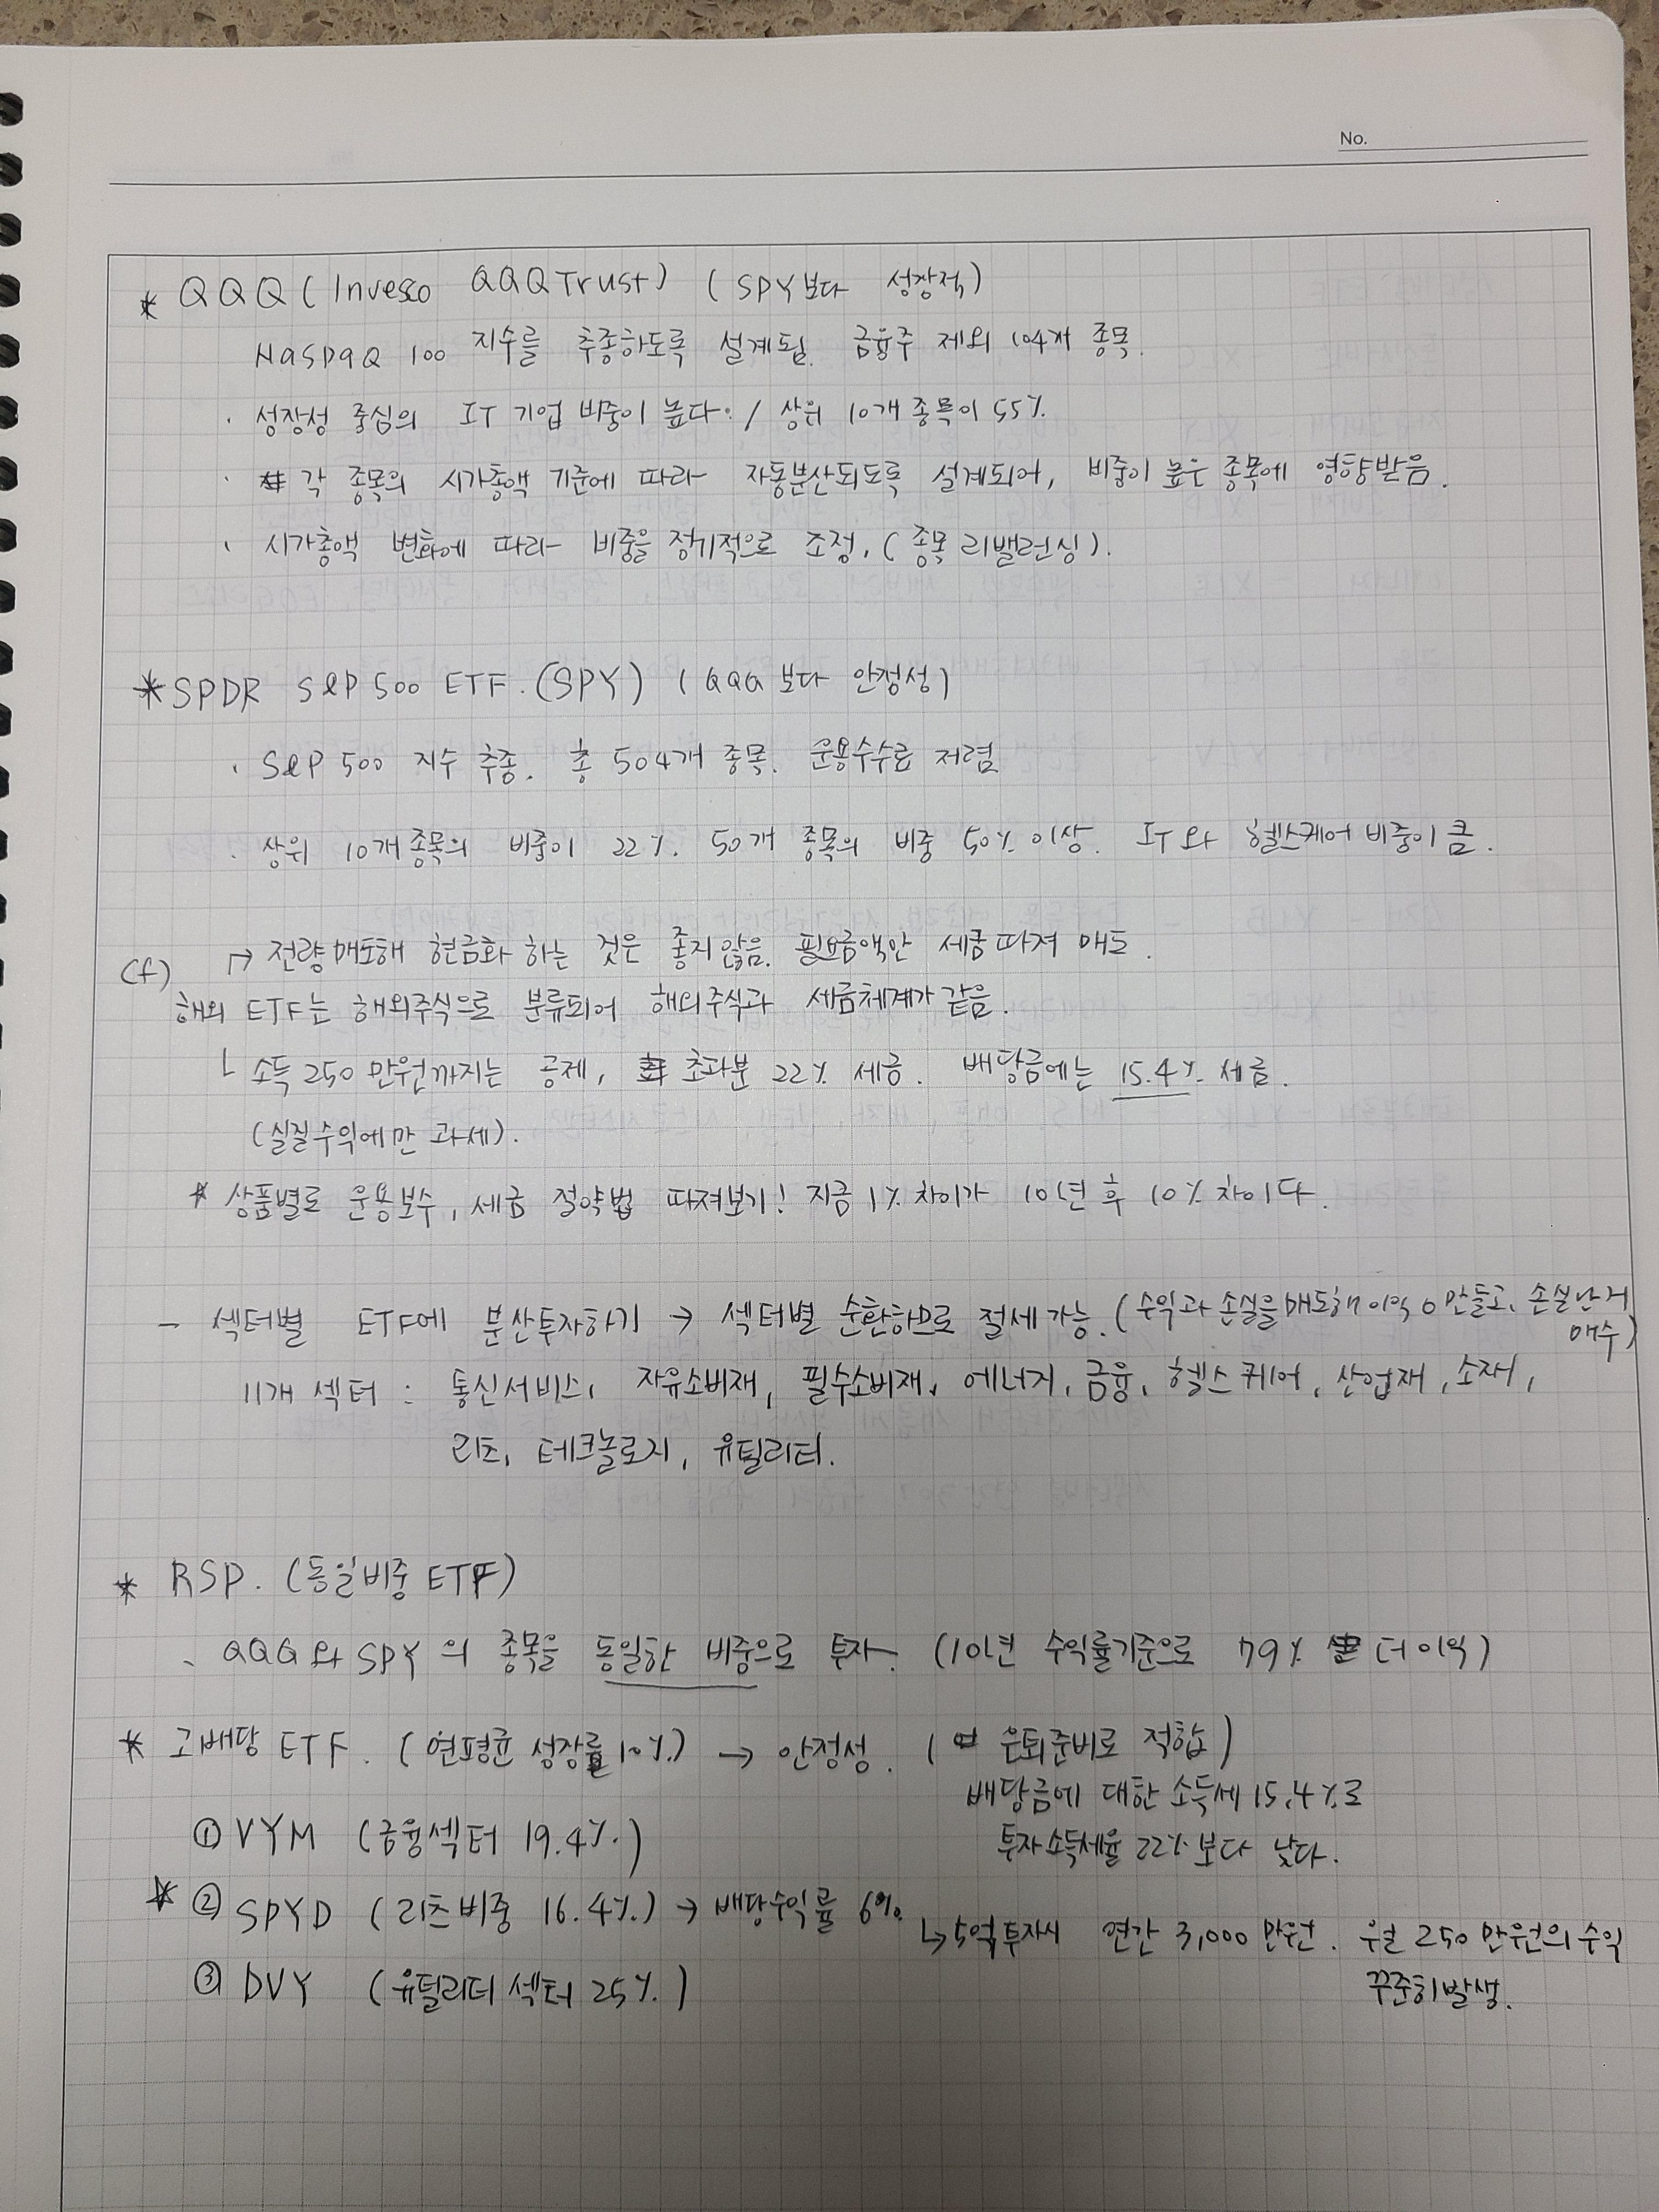 No.
* QQQ (Invesco QQQ Trust) (SPY보다 성장적)
NaSDaQ 100 지수를 추종하도록 설계됨. 금융주 제외 104개 종목.
· 성장성 중심의 IT 기업 비중이 높다. / 상위 10개 종목이 55%.
· 각 종목의 시가총액 기준에 따라 자동분산되도록 설계되어, 비중이 높은 종목에 영향받음.
· 시가총액 변화에 따라 비중을 정기적으로 조정. (종목 리밸런싱).
* SPDR S&P 500 ETF. (SPY) (QQQ 보다 안정성)
· S&P 500 지수 추종. 총 504개 종목. 운용수수료 저렴
· 상위 10개 종목의 비중이 22%. 50개 종목의 비중 50% 이상. IT와 헬스케어 비중이 큼.
(f) ↱ 전량매도해 현금화 하는 것은 좋지 않음. 필요금액만 세금 따져 매도.
해외 ETF는 해외주식으로 분류되어 해외주식과 세금체계가 같음.
└ 소득 250만원까지는 공제, 초과분 22% 세금. 배당금에는 15.4% 세금.
(실질수익에만 과세).
* 상품별로 운용보수, 세금 절약법 따져보기! 지금 1% 차이가 10년 후 10% 차이다.
- 섹터별 ETF에 분산투자하기 → 섹터별 순환하므로 절세가능. (수익과 손실을 매도해 이익 0 만들고, 손실난거
매수)
11개 섹터 : 통신서비스, 자유소비재, 필수소비재, 에너지, 금융, 헬스케어, 산업재, 소재,
리츠, 테크놀로지, 유틸리티.
* RSP. (동일비중 ETF)
· QQQ와 SPY의 종목을 동일한 비중으로 투자. (10년 수익률기준으로 79% 더 이익)
* 고배당 ETF. (연평균 성장률 10%.) → 안정성. ( 은퇴준비로 적합)
배당금에 대한 소득세 15.4%로
① VYM (금융섹터 19.4%.)
투자소득세율 22% 보다 낮다.
* ② SPYD (리츠비중 16.4%.) → 배당수익률 6%.
↳ 5억 투자시 연간 3,000만원. 월 250만원의 수익
③ DVY (유틸리티 섹터 25%.)
꾸준히 발생.